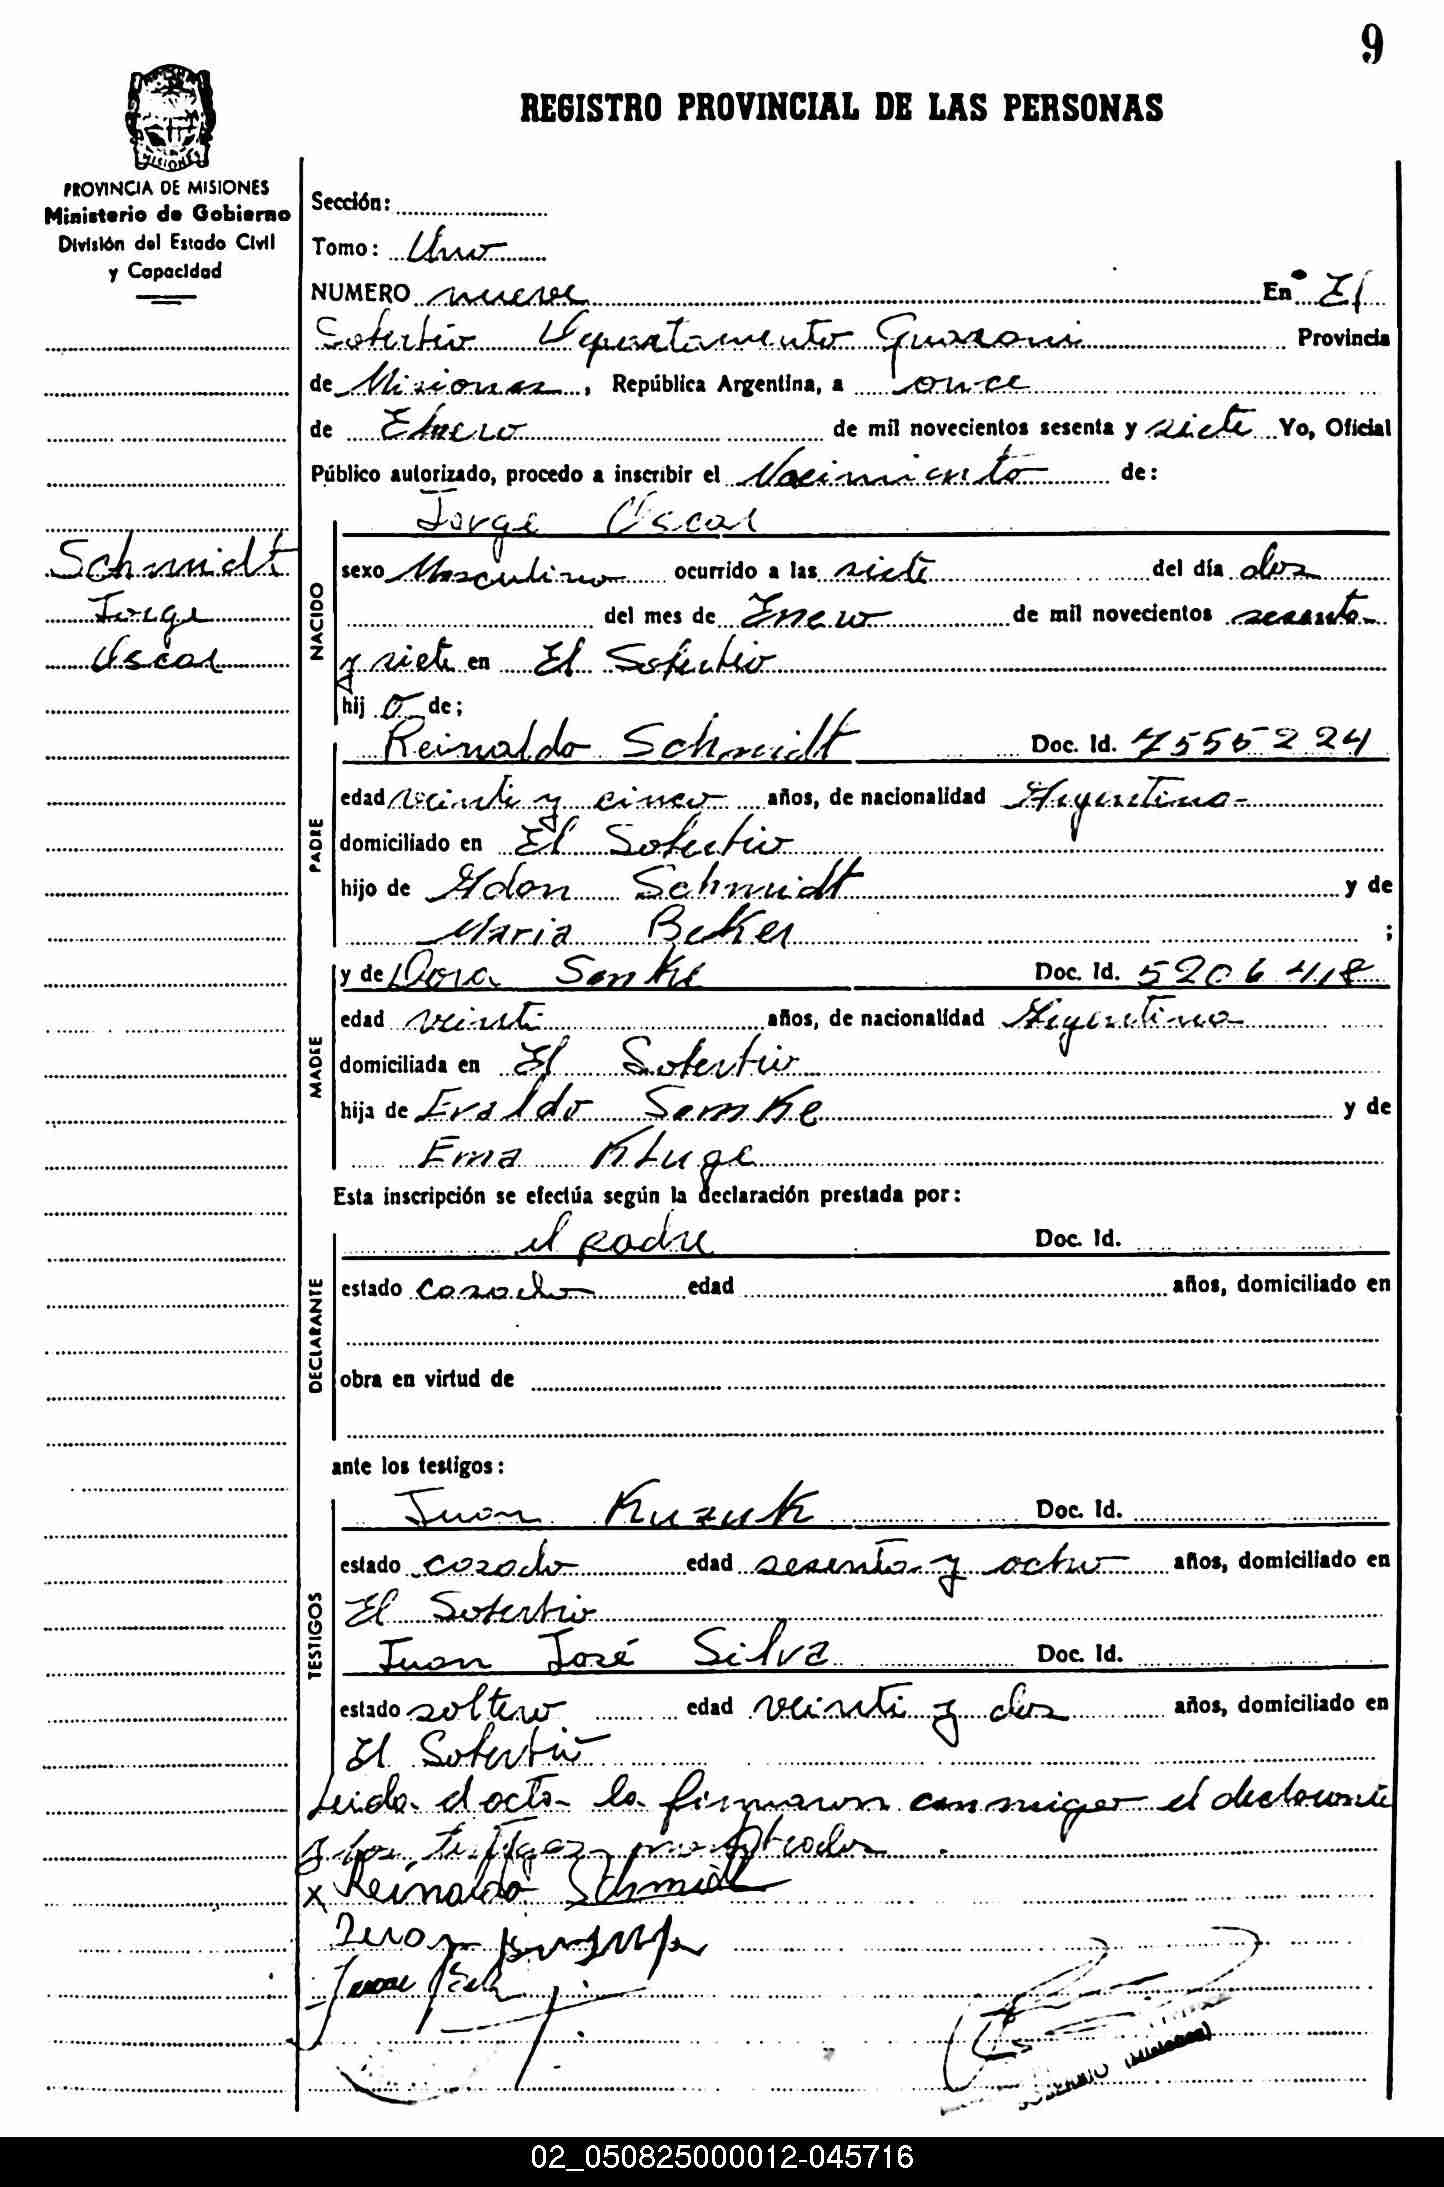 9
REGISTRO PROVINCIAL DE LAS PERSONAS
MISIONES
PROVINCIA DE MISIONES
Ministerio de Gobierno
División del Estado Civil
y Capacidad
Schmidt
Jorge
Oscar
Sección:
Tomo: Uno
NUMERO nueve En El
Soberbio Departamento Guarani Provincia
de Misiones, República Argentina, a once
de Enero de mil novecientos sesenta y siete Yo, Oficial
Público autorizado, procedo a inscribir el Nacimiento de:
Jorge Oscar
NACIDO
sexo Masculino ocurrido a las siete del día dos
del mes de Enero de mil novecientos sesenta
y siete en El Soberbio
hijo de;
PADRE
Reinaldo Schmidt Doc. Id. 7555224
edad veinti y cinco años, de nacionalidad Argentina-
domiciliado en El Soberbio
hijo de Adon Schmidt y de
Maria Beker ;
MADRE
y de Dora Semke Doc. Id. 5206418
edad veinti años, de nacionalidad Argentina
domiciliada en El Soberbio
hija de Evaldo Semke y de
Ema Kluge
Esta inscripción se efectúa según la declaración prestada por:
DECLARANTE
el padre Doc. Id.
estado casado edad años, domiciliado en
obra en virtud de
ante los testigos:
TESTIGOS
Juan Kuzuk Doc. Id.
estado casado edad sesenta y ocho años, domiciliado en
El Soberbio
Juan José Silva Doc. Id.
estado soltero edad veinti y dos años, domiciliado en
El Soberbio
Leida el acta la firmaron conmigo el declarante
y los testigos
x Reinaldo Schmidt
Juan
(MISIONES)
02_050825000012-045716